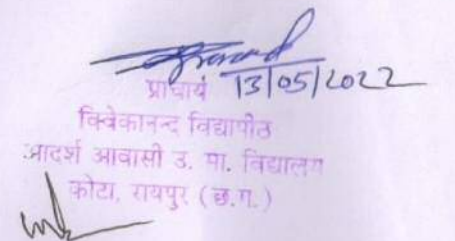 प्राचार्य 13/05/2022
विवेकानन्द विद्यापीठ
आदर्श आवासी उ. मा. विद्यालय
कोटा, रायपुर (छ.ग.)